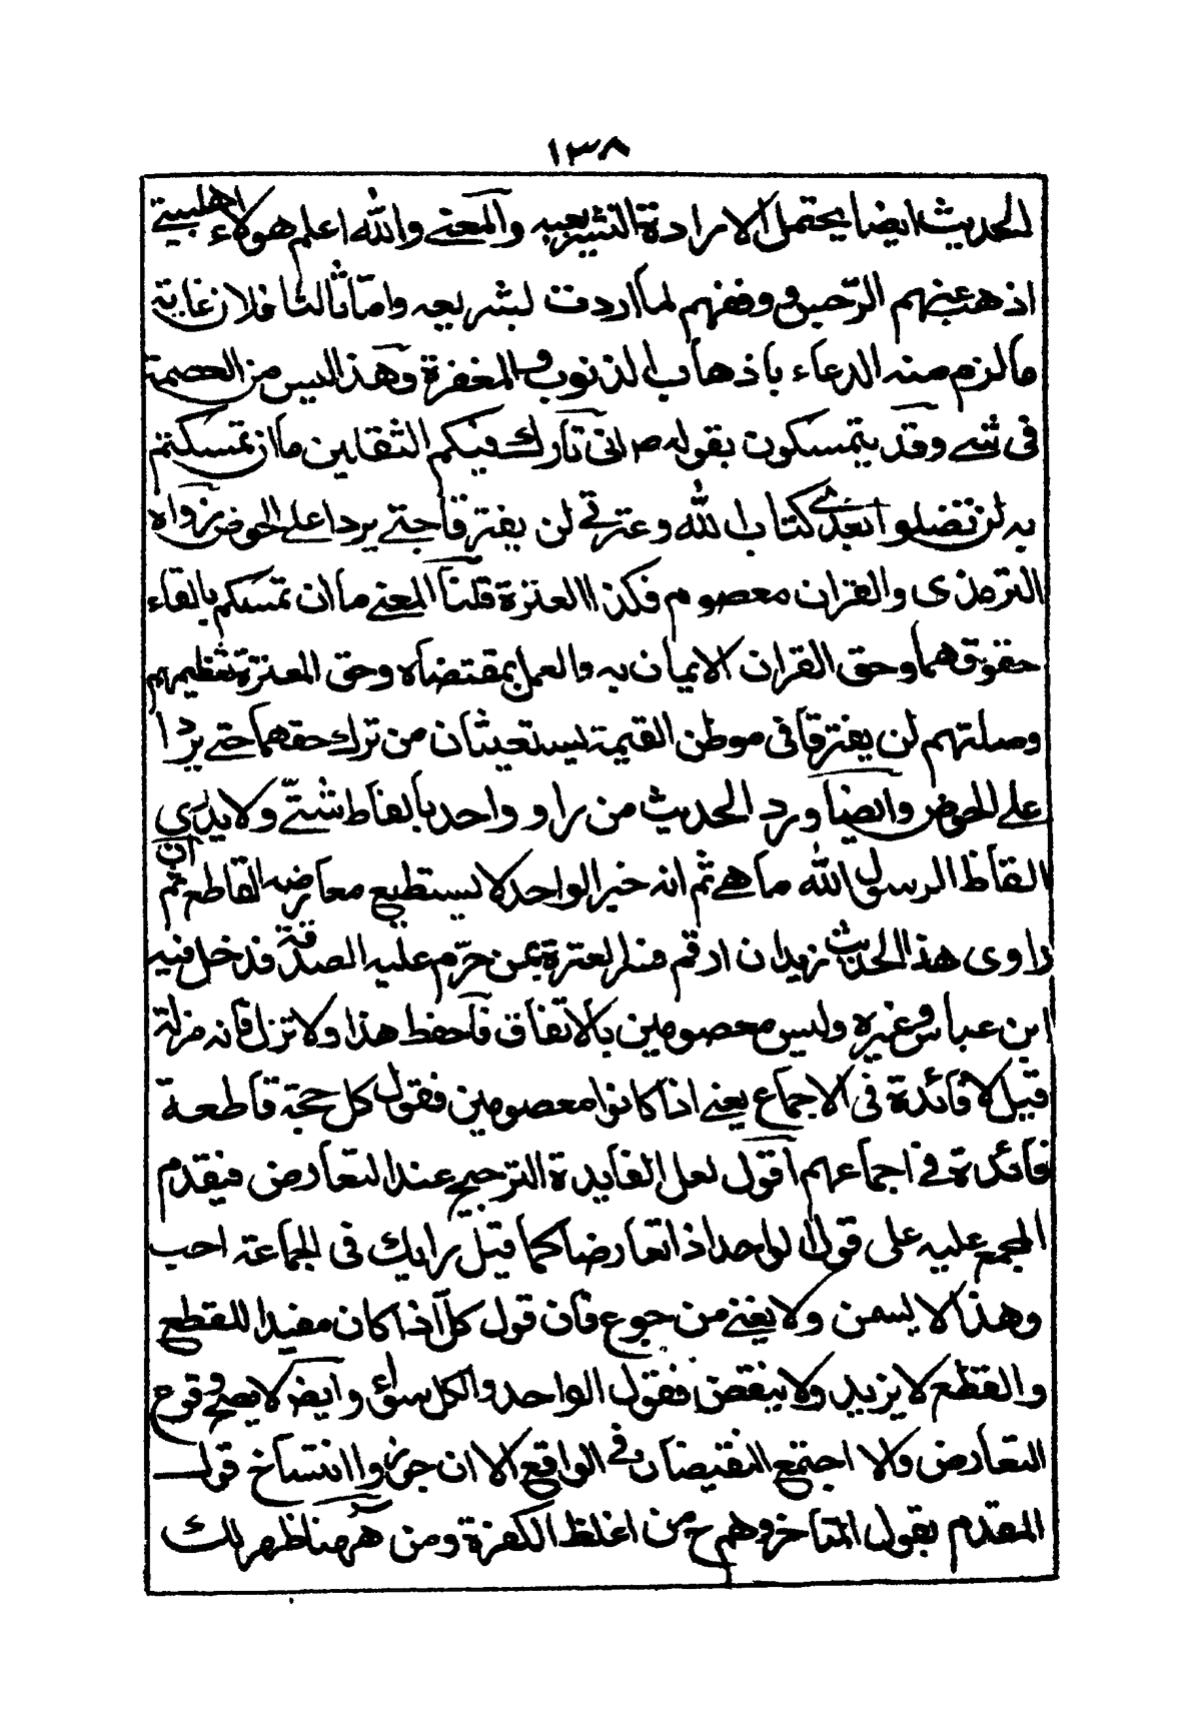 ١٣٨
الحديث ايضا يحتمل الارادة التشريعيه والمعنے والله اعلم هولاء اهلبيتے
اذهب عنهم الرجس ووفقهم لما اردت لبشريعه واما ثالثا فلان غاية
ما لزم منه الدعاء باذهاب الذنوب والمغفرة وهذا ليس من العصمة
فى شے وقد يتمسكون بقوله ص انى تارك فيكم الثقلين ما ان تمسكتم
به لن تضلوا بعدى كتاب الله وعترتے لن يفترقا حتے يردا علے الحوض رواه
الترمذى والقران معصوم فكذا العترة قلنا المعنے ما ان تمسكم بالقاء
حقوقهما وحق القران الايمان به والعمل بمقتضاه وحق العترة تعظيمهم
وصلتهم لن يفترقا فى موطن القيمة يستعيثان من ترك حقهما حتے يردا
علے الحوض وايضا ورد الحديث من راو واحد بالفاظ شتّے ولا يدرى ان
الفاظ الرسول الله ما هے ثم انه خبر الواحد لا يستطيع معارضه القاطع ثم
راوى هذا الحديث زيد ان ارقم فسر العترة بمن حرّم عليه الصدقة فدخل فيه
ابن عباس وغيره وليس معصومين بالاتفاق فاحفظ هذا ولا تزل فانه مزلة
قيل لا فائدة فى الاجماع يعنے اذا كانوا معصومين فقول كل حجة قاطعة
فائدة فے اجماعهم اقول لعل الفايدة الترجيح عند التعارض فيقدم
المجمع عليه على قول الواحد اذا تعارضا كما قيل رايك فى الجماعة احب
وهذا لا يسمن ولا يغنے من جوع فان قول كل اذا كان مفيدا للقطع
والقطع لا يزيد ولا ينقض فقول الواحد والكل سواء وايضا لا يصح وقوع
التعارض والا اجتمع النقيضان فے الواقع الا ان جوزوا انتساخ قول
المقدم بقول المتاخر وهم ح من اغلظ الكفرة ومن ههنا ظهر لك